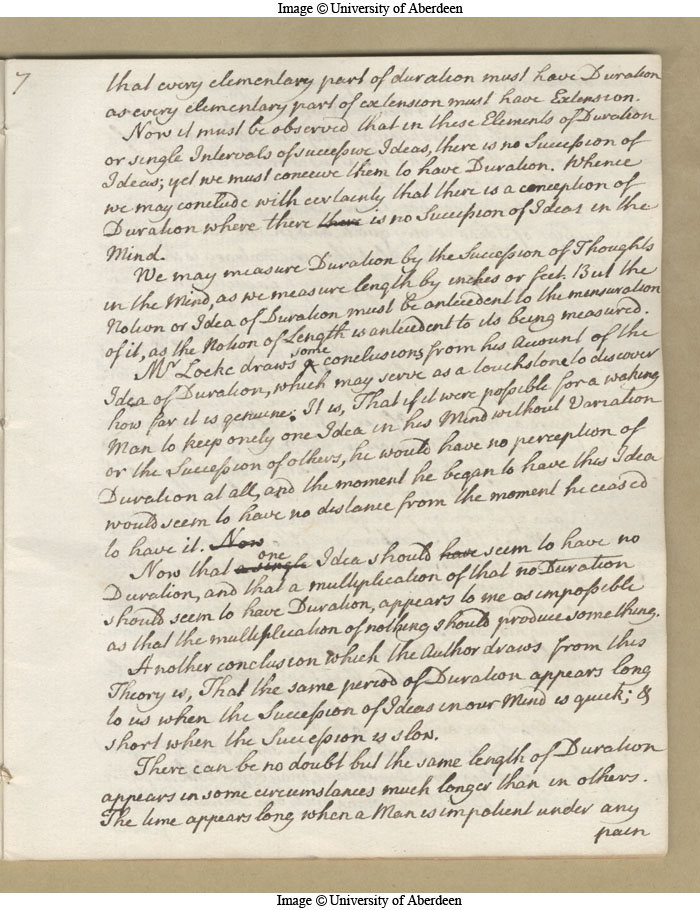 Image © University of Aberdeen
7
that every elementary part of duration must have Duration
as every elementary part of extension must have Extension.
Now it must be observed that in these Elements of Duration
or single Intervals of successive Ideas, there is no Succession of
Ideas; yet we must conceive them to have Duration. Whence
we may conclude with certainty that there is a conception of
Duration where there there is no Succession of Ideas in the
Mind.
We may measure Duration by the Succession of Thoughts
in the Mind, as we measure length by inches or feet. But the
Notion or Idea of Duration must be antecedent to the mensuration
of it, as the Notion of Length is antecedent to its being measured.
Mr Locke draws some conclusions from his Account of the
Idea of Duration, which may serve as a touchstone to discover
how far it is genuine. It is, That if it were possible for a waking
Man to keep onely one Idea in his Mind without Variation
or the Succession of others, he would have no perception of
Duration at all, and the moment he began to have this Idea
would seem to have no distance from the moment he ceased
to have it. Now
Now that a single one Idea should have seem to have no
Duration, and that a multiplication of that no Duration
should seem to have Duration, appears to me as impossible
as that the multiplication of nothing should produce something.
Another conclusion which the Author draws from this
Theory is, That the same period of Duration appears long
to us when the Succession of Ideas in our Mind is quick; &
short when the Succession is slow.
There can be no doubt but the same length of Duration
appears in some circumstances much longer than in others.
The time appears long when a Man is impatient under any
pain
Image © University of Aberdeen